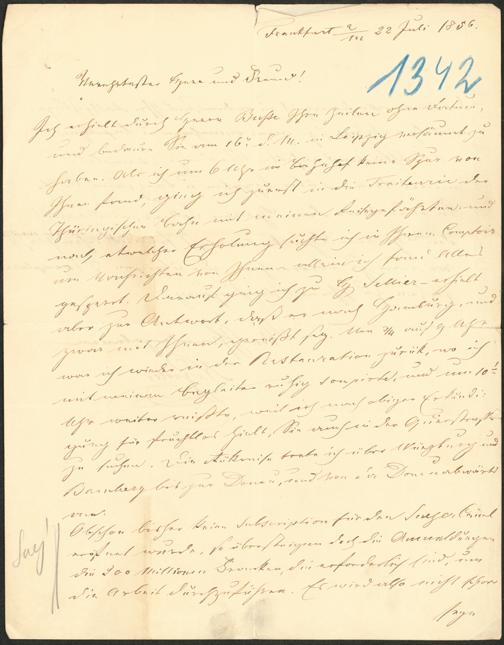 Frankfurt a/M 22 Juli 1856.
1342
Verehrtester Herr und Freund!
Ich erhielt durch Herrn Buße Ihre Zeilen ohne Datum,
und bedaure Sie am 16. d. M. in Leipzig versäumt zu
haben. Als ich um 6 Uhr im Bahnhof keine Spur von
Ihnen fand, ging ich zuerst in die der
Thüringischen Bahn mit meinen Reisegefährten und
nach etwelcher Erholung suchte ich in Ihrem Comptoir
um Nachrichten von Ihnen allein ich fand Alles
gesperrt. Darauf ging ich zu H. Sellier erhielt
aber zur Antwort, daß er nach Hamburg, und
zwar mit Ihnen, gereißt sey. Um 3/4 auf 9 Uhr
war ich wieder in der Restauration zurük, wo ich
mit meinem Begleiter ruhig soupirte, und um 10 1/2
Uhr weiter reißte, weil ich nach obiger Erkundi-
gung für fruchtlos hielt, Sie auch in der Querstraße
zu suchen. Die Rükreise trete ich über Würzburg und
Bamberg bis zur Donau, und von da Donauabwärts
an.
Obschon bisher keine Subscription für den Suez Canal
eröfnet wurde, so übersteigen doch die Anmeldungen
die 200 Millionen Franken, die erforderlich sind, um
die Arbeit durchzuführen. Es wird also nicht schwer
seyn
Suez!